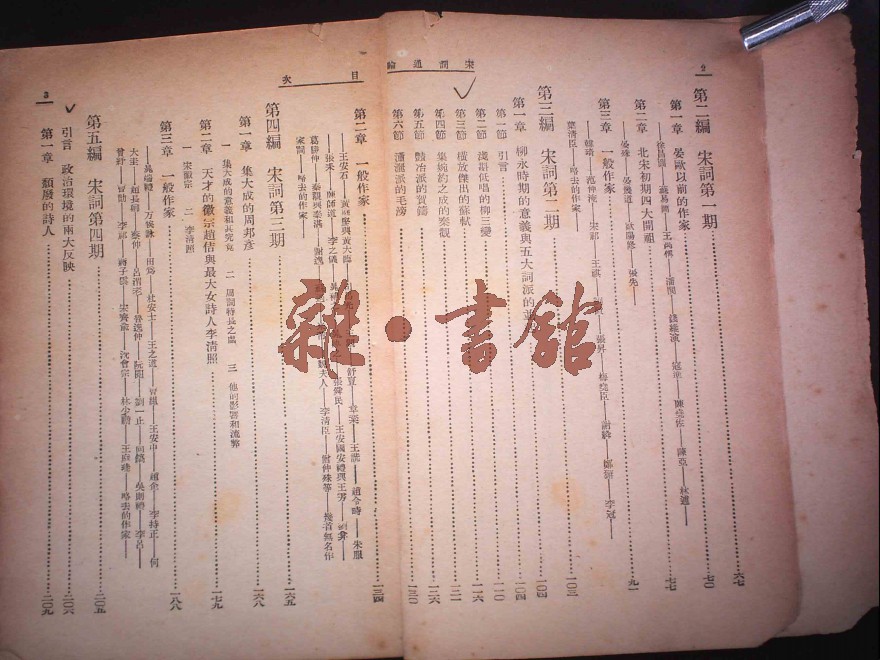 宋詞通論
2
第二編　宋詞第一期……六七
第一章　晏歐以前的作家……七〇
徐昌圖——蘇易簡——王禹偁——潘閬——錢惟演——寇準——陳堯佐——陳亞——林逋
第二章　北宋初期四大開祖……七七
晏殊——晏幾道——歐陽修——張先
第三章　一般作家……九一
韓琦——范仲淹——宋祁——王琪——張昪——梅堯臣——謝絳——李冠——
葉清臣——略去的作家
……一〇三
第三編　宋詞第二期……一〇四
第一章　柳永時期的意義與五大詞派的……一〇四
第一節　引言……一〇四
第二節　淺斟低唱的柳三變……一一六
第三節　橫放傑出的蘇軾……一二一
第四節　集婉約之成的秦觀……一二六
第五節　豔冶派的賀鑄……一三〇
第六節　瀟灑派的毛滂
目次
第二章　一般作家……一三四
——王安石——舒亶——章楶——王詵——趙令畤——朱服
——張耒——陳師道——李之儀——張舜民——王安國安禮與王雱
葛勝仲——秦覯與秦湛——謝逸——魏夫人——李清臣——僧仲殊等——幾首無名作
家詞——略去的作家
第四編　宋詞第三期……一六五
第一章　集大成的周邦彥……一六八
一　集大成的意義和其究竟　二　周詞特長之處　三　他的影響和流弊
第二章　天才的徽宗趙佶與最大女詩人李清照……一七九
一　宋徽宗　二　李清照
第三章　一般作家……一八八
——晁端禮——万俟詠——田爲——杜安士——王之道——曾紆——王安中——趙企——李持正——何
大圭——趙長卿——蔡伸——呂渭老——魯逸仲——阮閱——劉一止——吳則禮——李呂——
曾紆——李邴——蔣子雲——宋齊愈——沈會宗——林少瞻——略去的作家
第五編　宋詞第四期……二〇五
引言　政治環境的兩大反映……二〇六
第一章　頹廢的詩人……二〇九
3
雜·書館